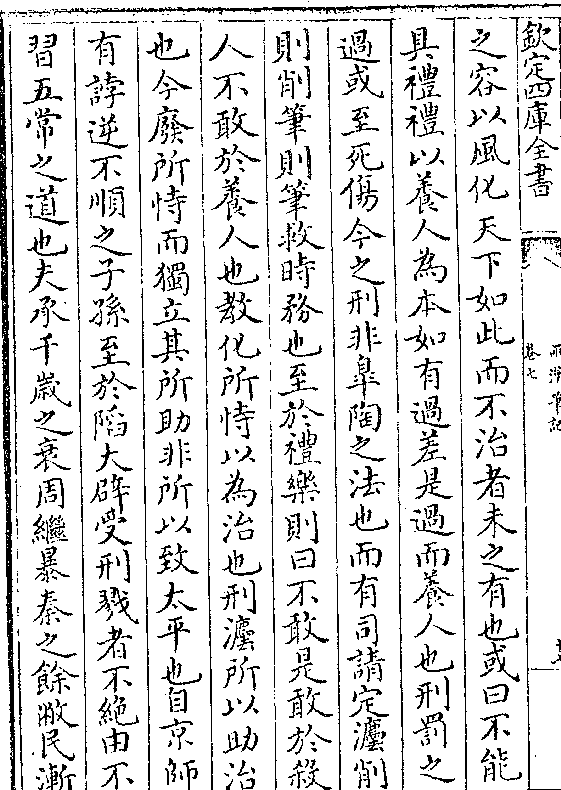 欽定四庫全書
卷七
之容以風化天下如此而不治者未之有也或曰不能
具禮禮以養人為本如有過差是過而養人也刑罰之
過或至死傷今之刑非臯陶之法也而有司請定灋削
則削筆則筆救時務也至於禮樂則曰不敢是敢於殺
人不敢於養人也教化所恃以為治也刑灋所以助治
也今廢所恃而獨立其所助非所以致太平也自京師
有誖逆不順之子孫至於䧟大辟受刑戮者不絕由不
習五常之道也夫承千歲之衰周繼暴秦之餘敝民漸